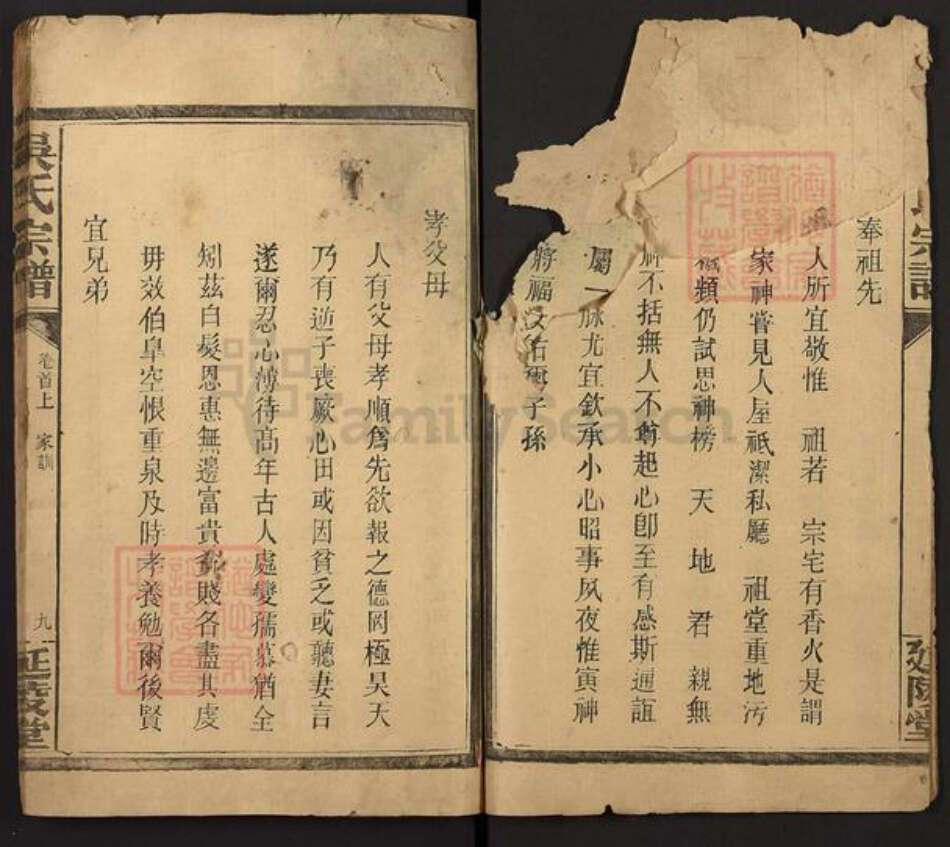 奉祖先
人所宜敬惟 祖若 宗宅有香火是謂
家神嘗見人屋祇潔私廳 祖堂重地污
穢頻仍試思神榜 天 地 君 親無
所不括無人不尊起心卽至有感斯通誼
屬一脉尤宜欽承小心昭事夙夜惟寅神
將福汝佑爾子孫
孝父母
人有父母孝順爲先欲報之德罔極昊天
乃有逆子喪厥心田或因貧乏或聽妻言
遂爾忍心薄待高年古人處變孺慕猶全
矧茲白髮恩惠無邊富貴貧賤各盡其虔
毋效伯臯空悵重泉及時孝養勉爾後賢
宜兄弟
吳氏宗譜
卷首上 家訓
九
延陵堂
氏宗譜
延陵堂
FamilySearch